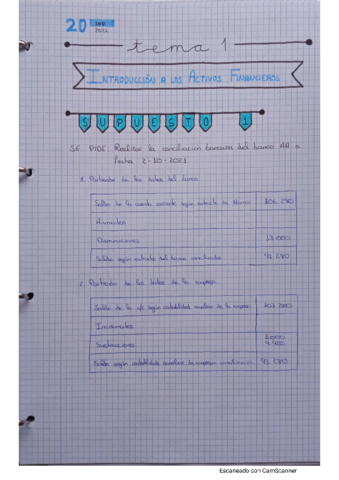 20 SEP
2021
tema 1
INTRODUCCIÓN A LOS ACTIVOS FINANCIEROS
SUPUESTO 1
SE PIDE: Realizar la conciliación bancaria del banco AA a
fecha 2-10-2021
1. Partiendo de los datos del banco
Saldo de la cuenta corriente según extracto de Banco 106.280
Aumentos
Disminuciones 13.000
Saldo según extracto del banco conciliado 93.280
2. Partiendo de los datos de la empresa
Saldo de la c/c según contabilidad auxiliar de la empresa
Incrementos
Sustracciones
Saldo según contabilidad auxiliar de empresa conciliado 93.280
Escaneado con CamScanner